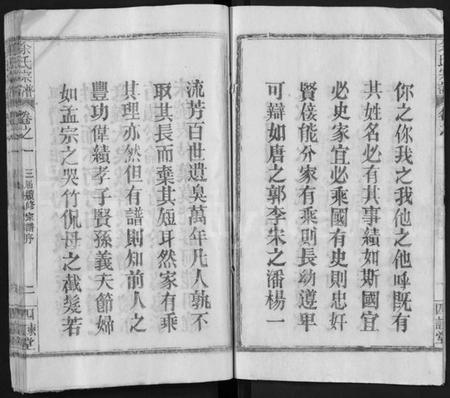 你之你我之我他之他呼既有
其姓名必有其事績如斯國宜
必史家宜必乘國有史則忠奸
賢佞能分家有乘則長幼遵卑
可辯如唐之郭李宋之潘楊一
流芳百世遺臭萬年凡人孰不
取其長而棄其短耳然家有乘
其理亦然但有譜則知前人之
豐功偉績孝子賢孫義夫節婦
如孟宗之哭竹侃母之截髮若
余氏宗譜 卷之一 三屆續修宗譜序 二 四諫堂